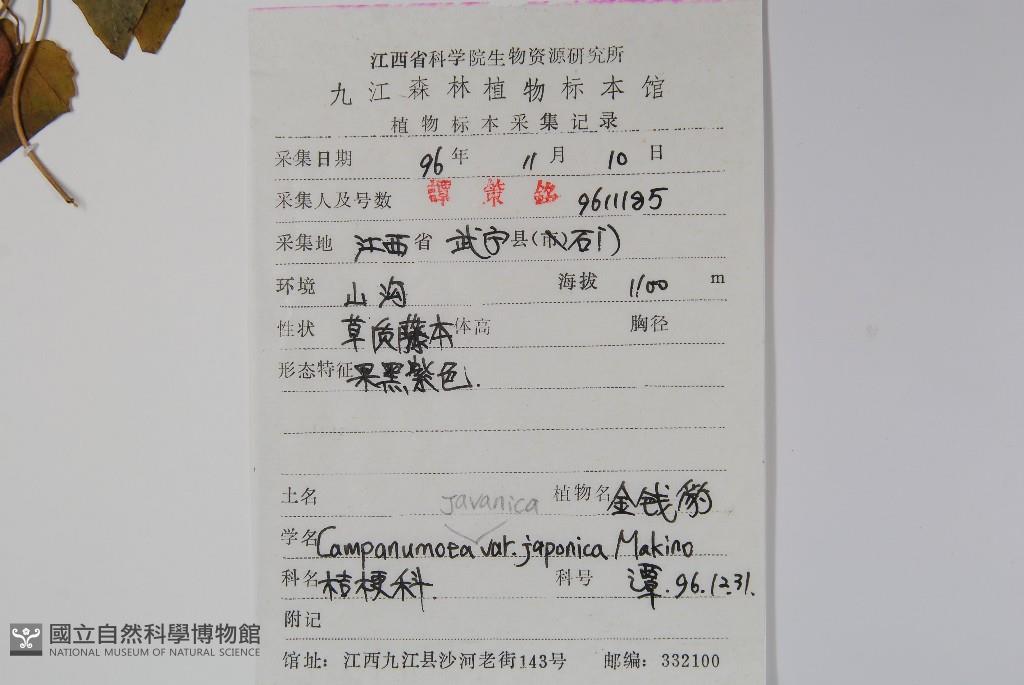 江西省科学院生物资源研究所
九江森林植物标本馆
植物标本采集记录
采集日期 96 年 11 月 10 日
采集人及号数 譚策銘 9611185
采集地 江西 省 武宁 县(市)(石门)
环境 山沟 海拔 1100 m
性状 草质藤本 体高 胸径
形态特征 果黑紫色.
土名 javanica 植物名 金钱豹
学名 Campanumoea var. japonica Makino
科名 桔梗科. 科号 谭. 96.12.31.
附记
馆址: 江西九江县沙河老街143号 邮编: 332100
國立自然科學博物館
NATIONAL MUSEUM OF NATURAL SCIENCE